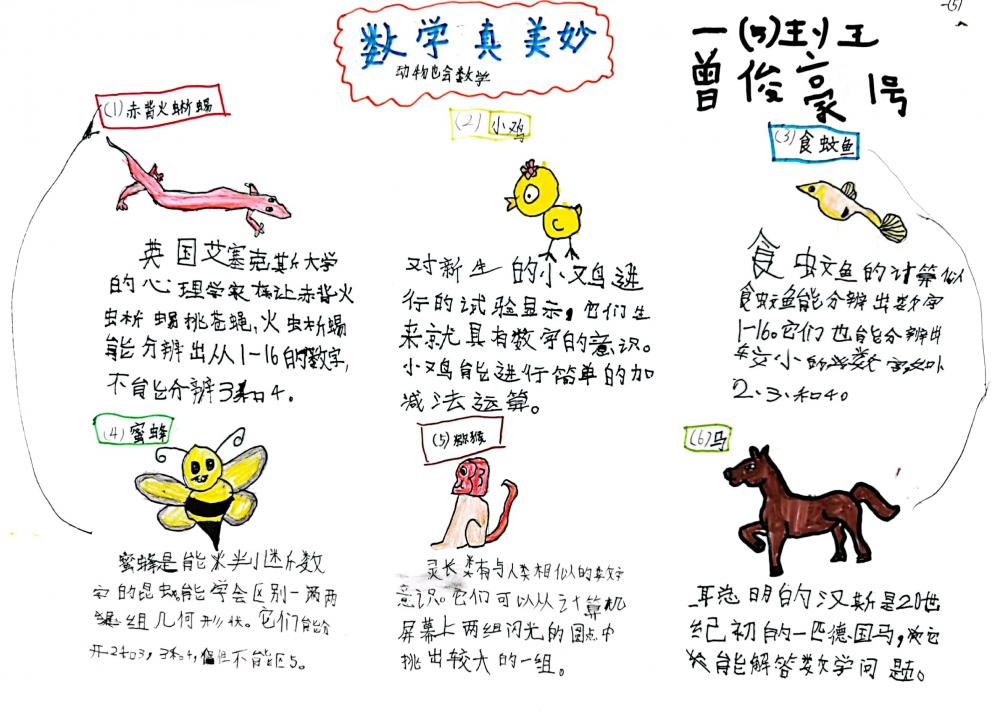 数学真美妙
动物也会数学
一(5)刘王
曾俊豪 1号
(1)赤背火蜥蜴
英国艾塞克斯大学
的心理学家在让赤背火
虫析蜴挑苍蝇,火虫析蜴
能分辨出从1-16的数字,
不能分辨3和4。
(2)小鸡
对新生的小鸡进
行的试验显示,它们生
来就具有数字的意识。
小鸡能进行简单的加
减法运算。
(3)食蚊鱼
食蚊鱼的计算似
食蚊鱼能分辨出数字
1-16。它们也能分辨出
较小的数字如
2、3、和4。
(4)蜜蜂
蜜蜂是能判断数
字的昆虫能学会区别一两两
组几何形状。它们能分
开2和3,3和4,但不能区5。
(5)猕猴
灵长类有与人类相似的数字
意识。它们可以从计算机
屏幕上两组闪光的圆点中
挑出较大的一组。
(6)马
耳总明的汉斯是20世
纪初的一匹德国马,它
能解答数学问题。